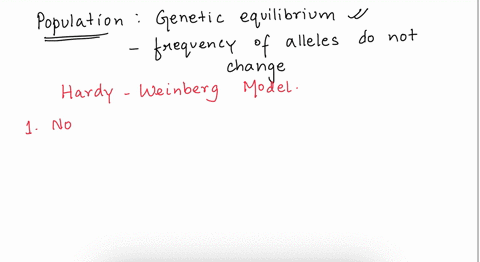 Population : Genetic equilibrium
- frequency of alleles do not
change
Hardy - Weinberg Model.
1. No